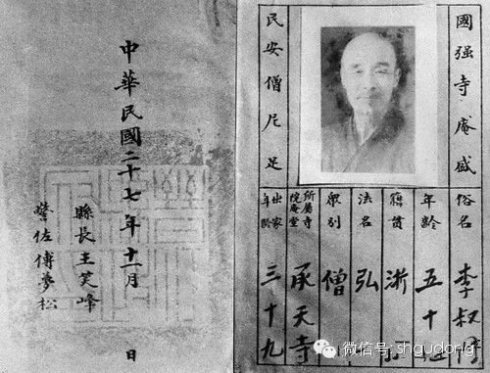 國强寺庵盛
民安僧尼足
俗名 李叔
年齡 五十
籍贯 浙
法名 弘
眾別 僧
所屬寺院庵堂 承天寺
出家年齡 三十九
中華民國二十七年十一月 日
縣長王笑峰
警佐傅夢松
微信号: shgudong